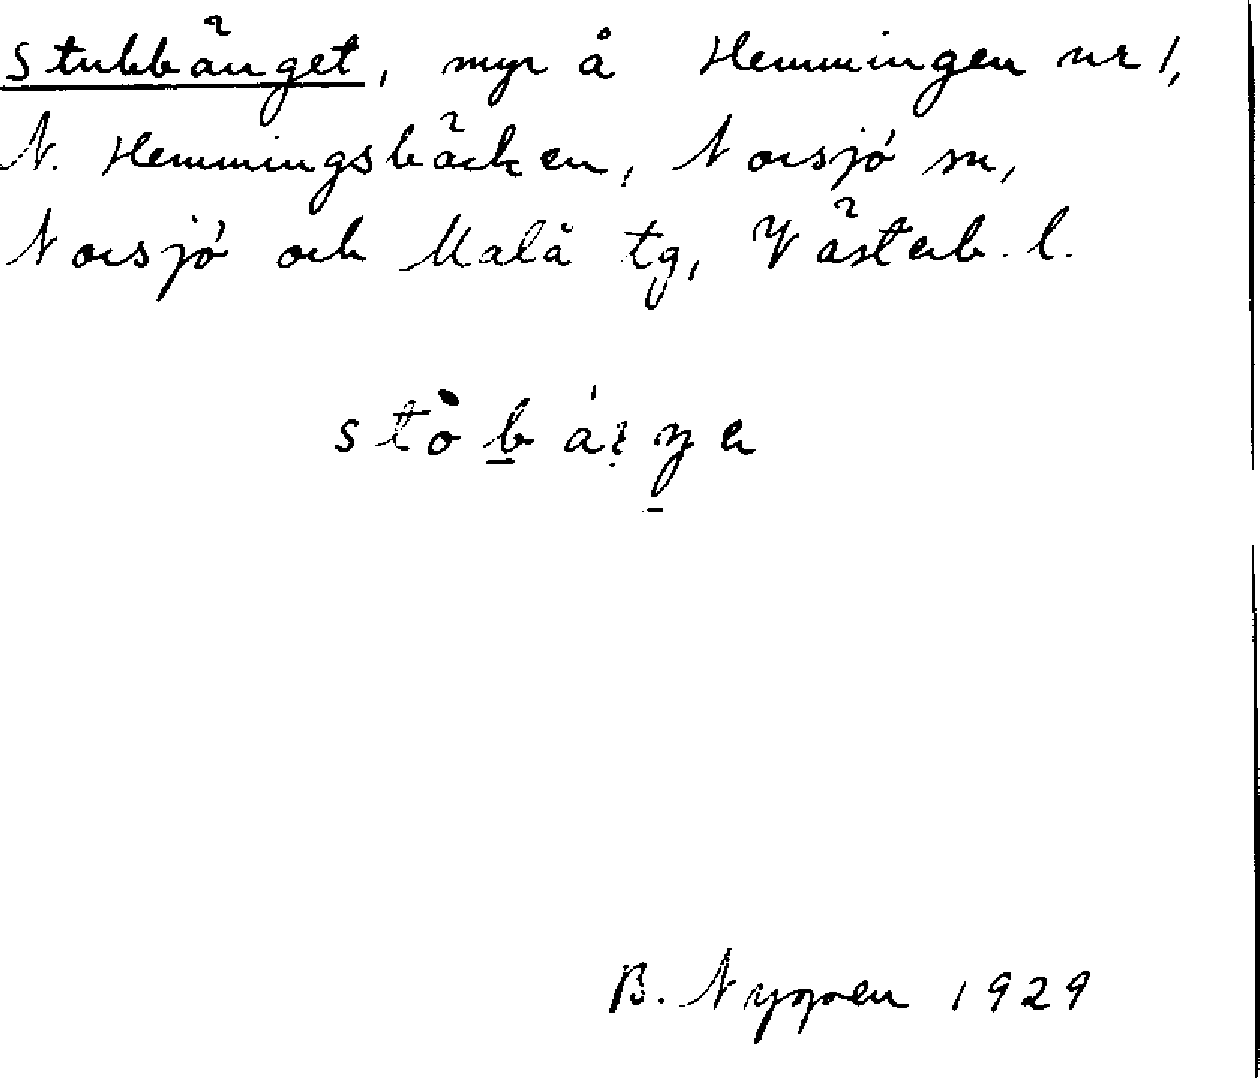 Stubbänget, myr å Hemmingen nr 1,
N. Hemmingsbäcken, Norsjö sn,
Norsjö och Malå tg, Västerb. l.
B. Nyppen 1929